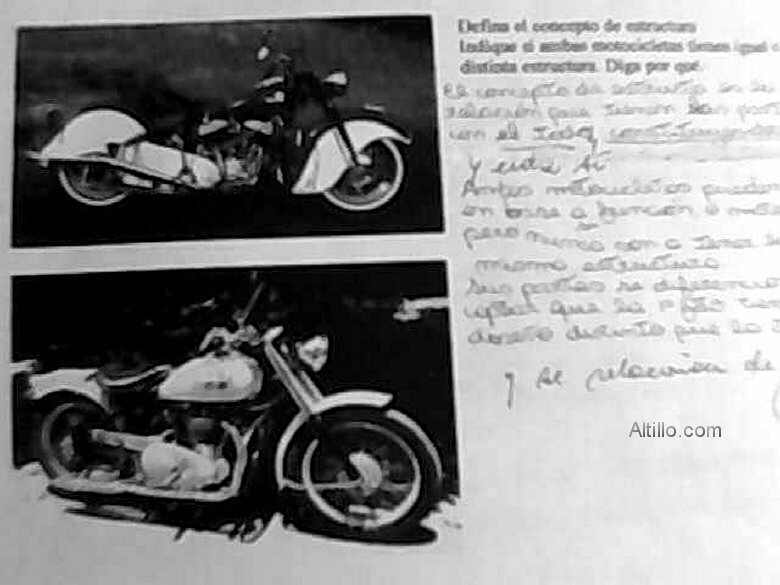 Defina el concepto de estructura
Indique si ambas motocicletas tienen igual o
distinta estructura. Diga por qué.
El concepto de estructura es la
relación que tienen las partes
con el todo,
y entre sí
Ambas motocicletas pueden
en base a función o
pero nunca van a tener la
misma estructura
sus partes se diferencian
que la 1º foto
distinto que la
y se relacionan de
Altillo.com